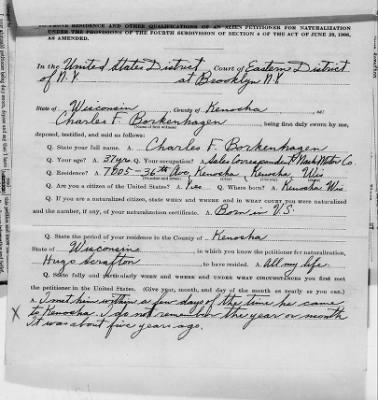 TO PROVE RESIDENCE AND OTHER QUALIFICATIONS OF AN ALIEN PETITIONER FOR NATURALIZATION
UNDER THE PROVISIONS OF THE FOURTH SUBDIVISION OF SECTION 4 OF THE ACT OF JUNE 29, 1906,
AS AMENDED.
In the United States District Court of Eastern District
of N.Y. at Brooklyn N.Y
State of Wisconsin County of Kenosha ss:
Charles F. Borkenhagen, being first duly sworn by me,
(Name of first witness)
deposed, testified, and said as follows:
Q. State your full name. A. Charles F. Borkenhagen
Q. Your age? A. 37 yrs Q. Your occupation? A. Sales Correspondent Nash Motor Co.
Q. Residence? A. 7805-36th Ave, Kenosha, Kenosha, Wis
Q. Are you a citizen of the United States? A. Yes Q. Where born? A. Kenosha Wis.
Q. If you are a naturalized citizen, state WHEN and WHERE and IN WHAT COURT YOU WERE NATURALIZED
and the number, if any, of your naturalization certificate. A. Born in U.S.
Q. State the period of your residence in the County of Kenosha
State of Wisconsin, in which you know the petitioner for naturalization,
Hugo to have resided. A. All my life.
Q. State fully and particularly WHEN AND WHERE AND UNDER WHAT CIRCUMSTANCES you first met
the petitioner in the United States. (Give year, month, and day of the month as nearly as you can.)
A. I met him within a few days of the time he came
X to Kenosha. I do not remember the year or month
It was about five years ago.